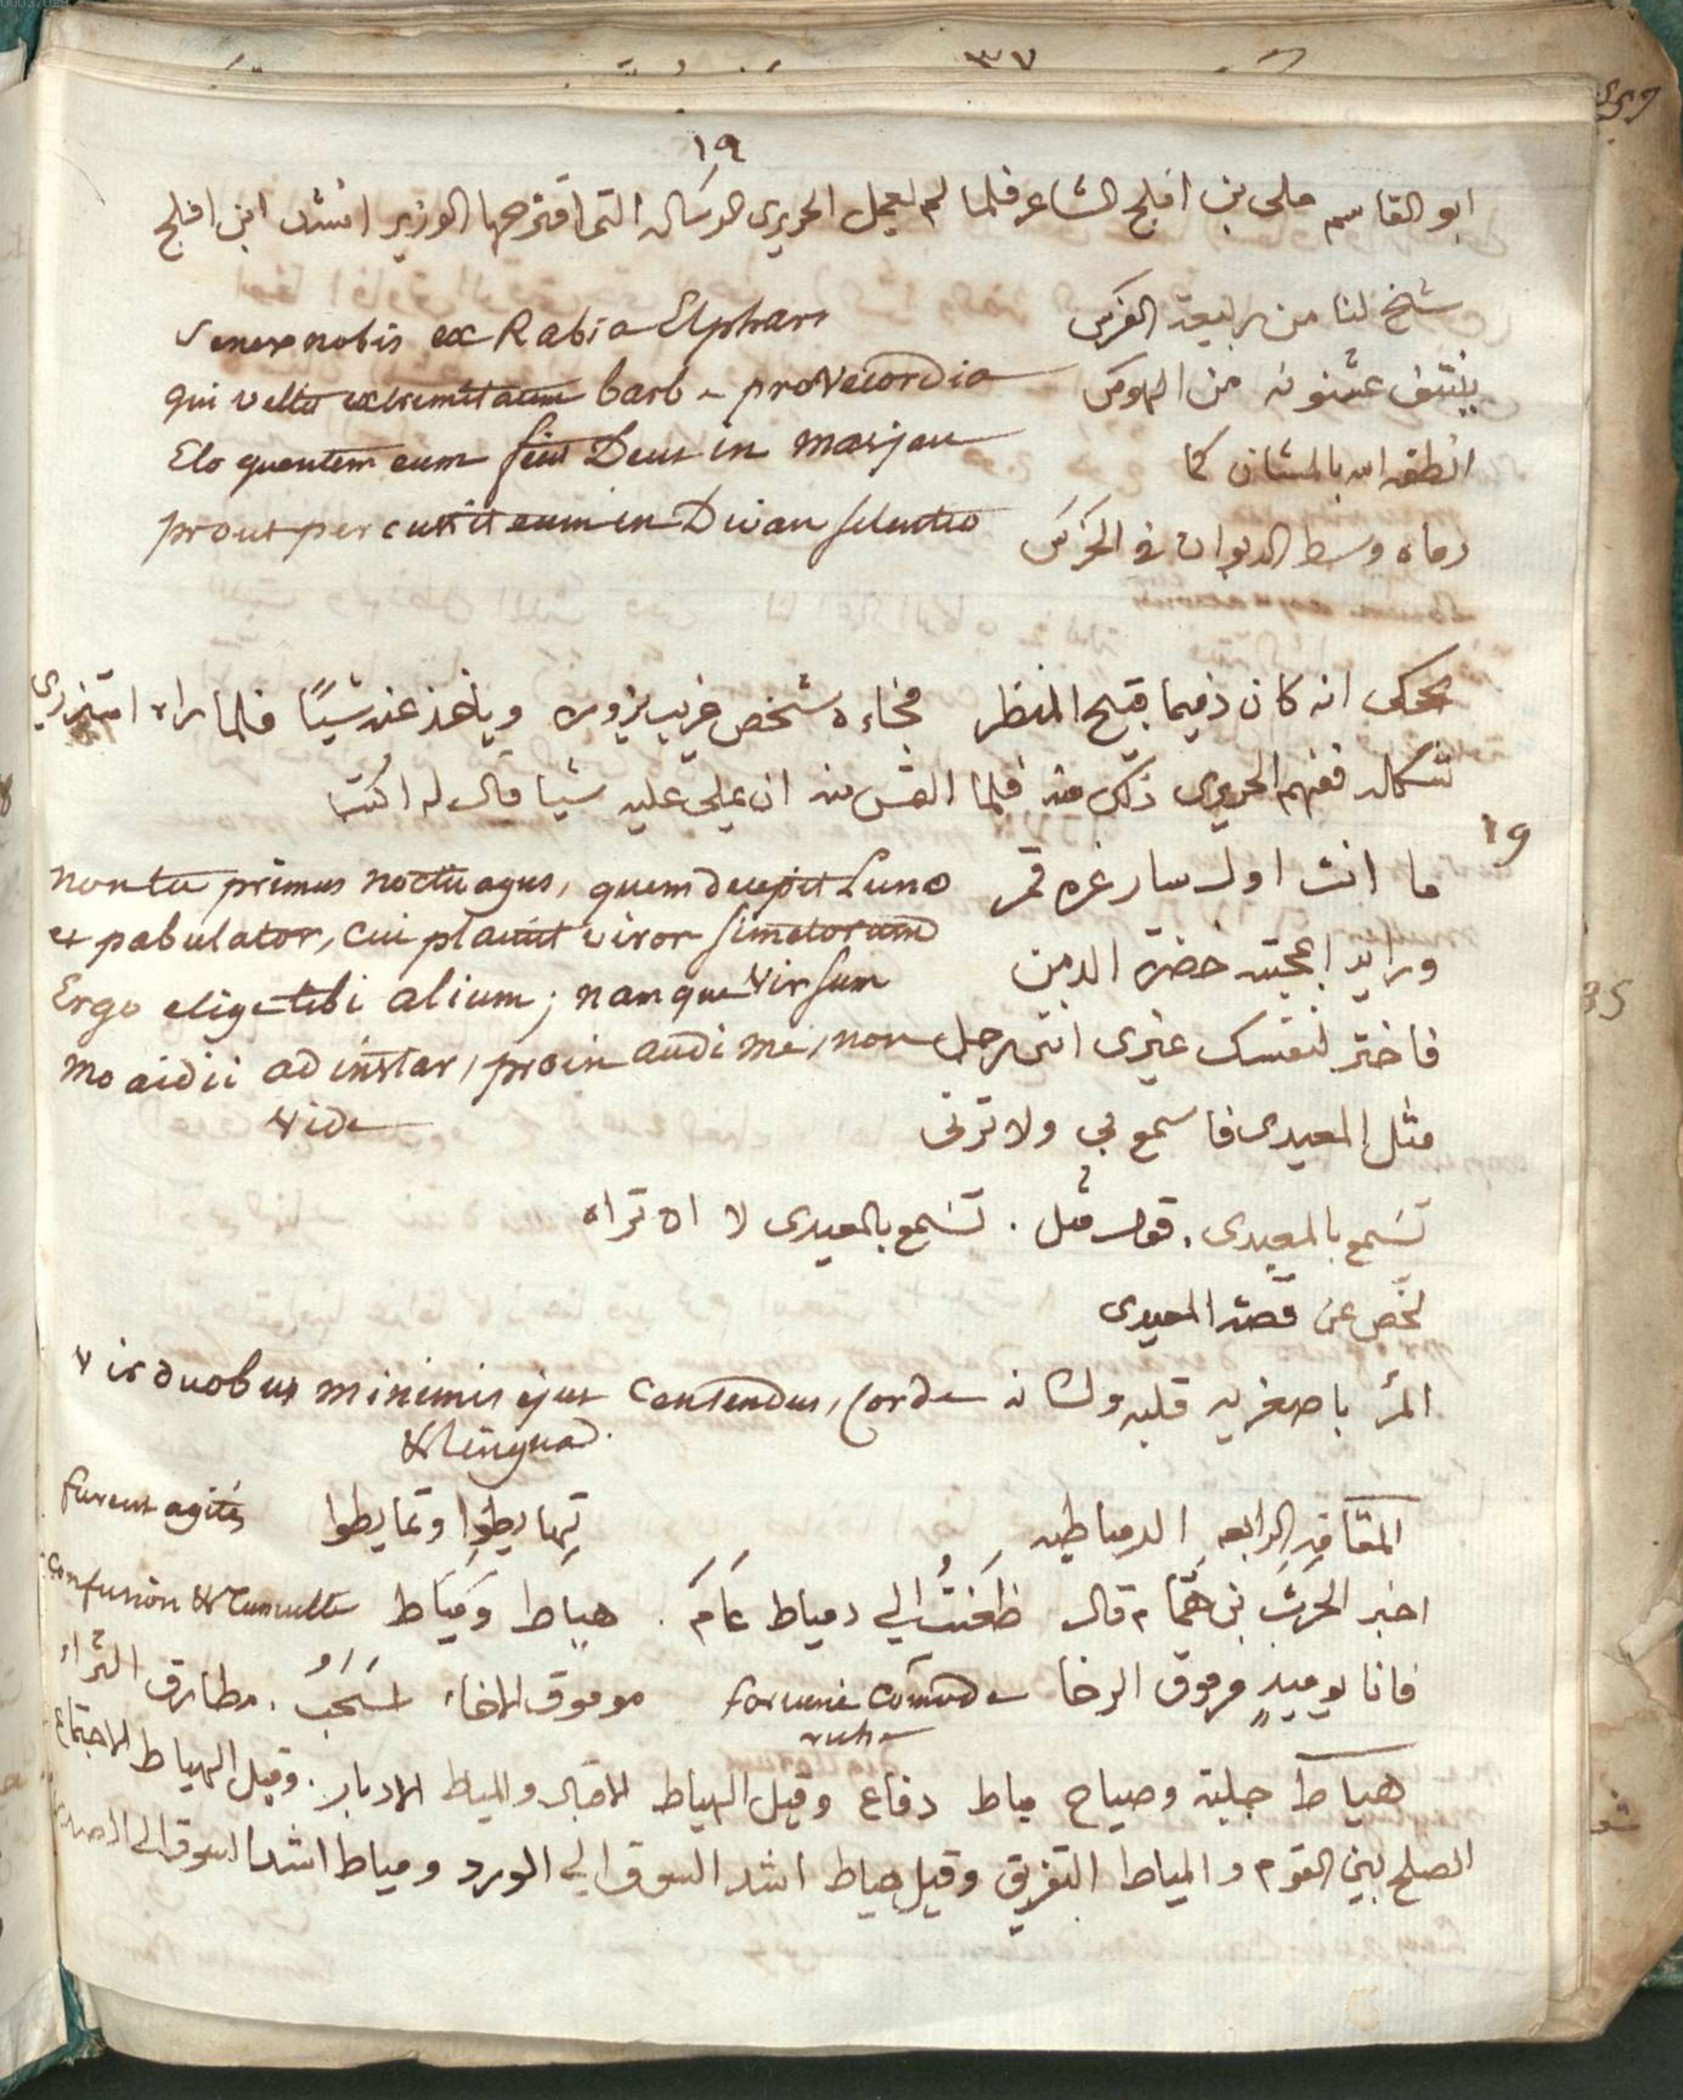 ٣٧
١٩
ابو القاسم على بن افلح الشاعر فلما لم يعمل الحريرى الرسالة التى اقترحها الوزير انشد ابن افلح
شيخ لنا من ربيعة الفرس Senex nobis ex Rabia Elphars
ينتف عثنونه من الهوس qui vellit extremitatem barb pro Vecordia
انطقه الله بالمشان كما Eloquentem eum fecit Deus in Masjan
رماه وسط الديوان فى الخرس prout percussit eum in Divan silentio
يحكى انه كان ذميما قبيح المنظر فجاءه شخص غريب يزوره وياخذ عنه شيًا فلما راه استزرى
شكله ففهم الحريرى ذلك منه فلما التمس منه ان يملى عليه شيا قال له اكتب
19
ما انت اول سار غره قمر non tu primus noctuagus, quem decepit Luna
ورايد اعجبته خضرة الدمن et pabulator, cui placuit viror simetorum
فاختر لنفسك غيرى اننى رجل Ergo elige tibi alium; namque Vir sum
مثل المعيدى فاسمع بي ولا ترنى Moaidii ad instar, proin audi me, non
vide
تسمع بالمعيدى. قول مثل. تسمع بالمعيدى لا ان تراه
لخص عن قصة المعيدى
المرُ باصغريه قلبه ولسانه Vir duobus minimis ejus Censendus, Corde
& lingua.
المقامة الرابعه الدمياطيه تهايطوا وتمايطوا furent agités
اخبر الحرث بن همام قال ظعنت الي دمياط عام. هياط ومياط confusion & Tumulte
فانا يوميذٍ مرموق الرخا fortune Comode موموق الاخاء اسحب. مطارق الثراء
riche
هياط جلبة وصياح مياط دفاع وقيل الهياط الاقبال والمياط الادبار. وقيل الهياط الاجتماع
الصلح بين القوم والمياط التفريق وقيل هياط اشد السوق الي الورد ومياط اشد السوق الى